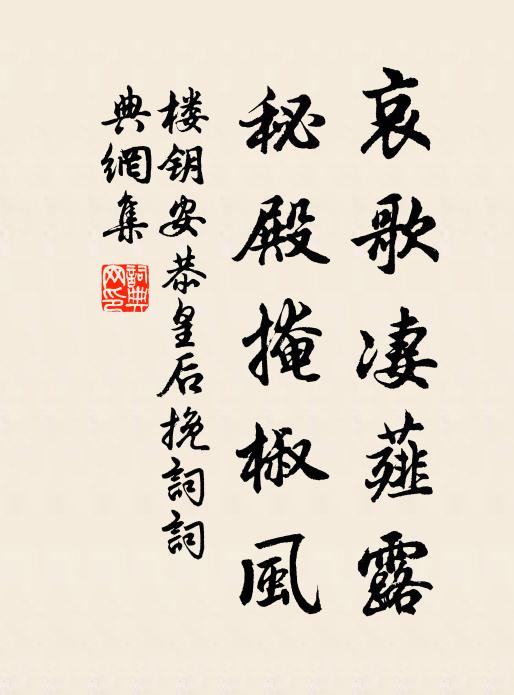 哀歌凄薤露
秘殿掩椒風
楼钥安恭皇后挽詞詞
典網集
詞典網印